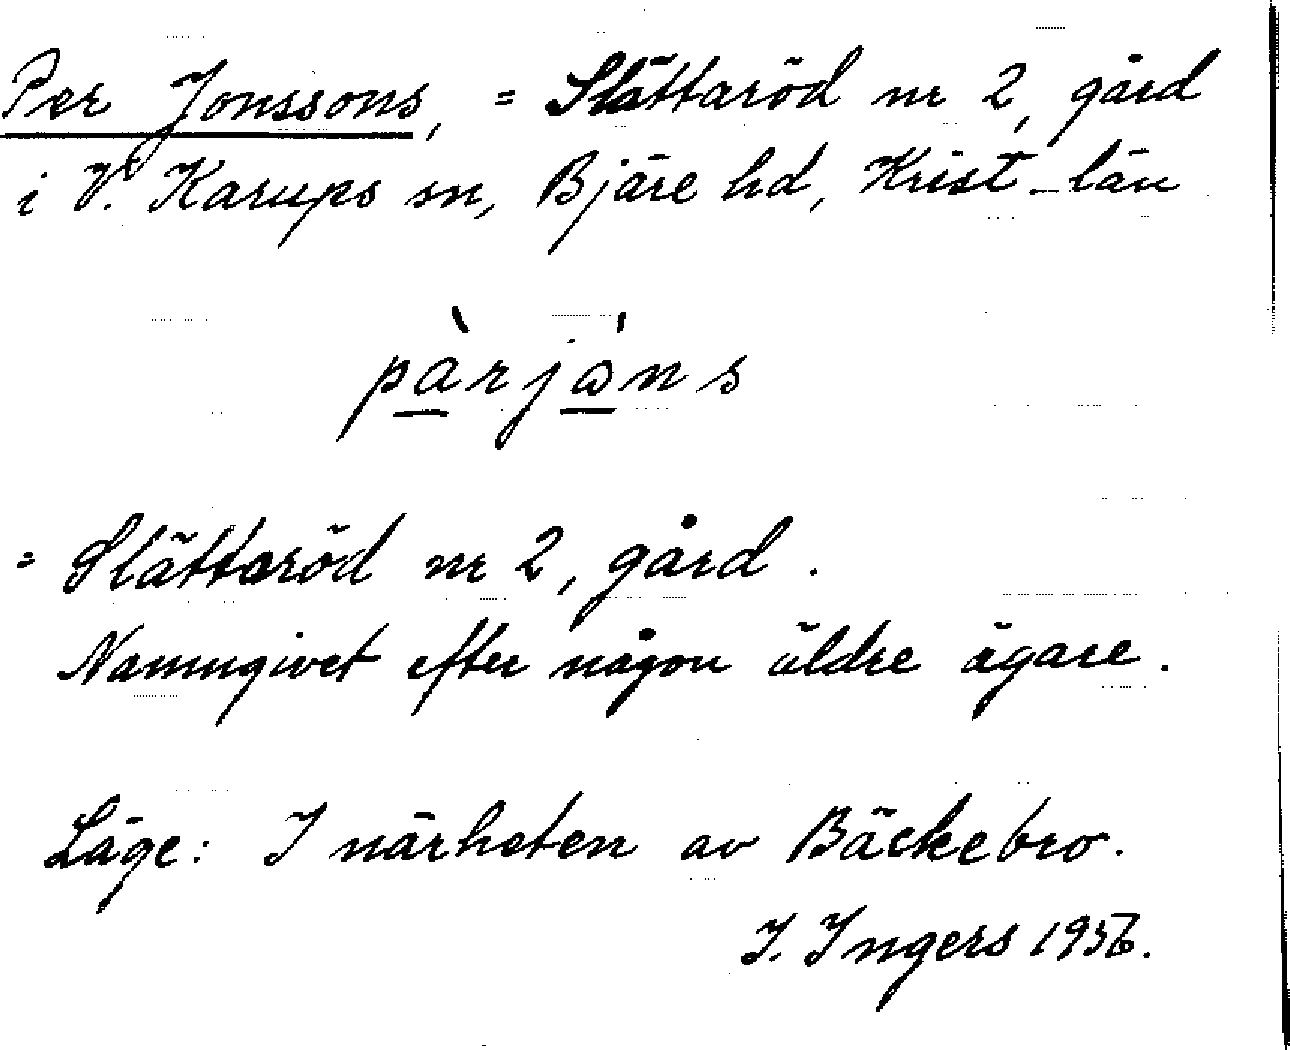 Per Jonssons, = Slättaröd nr 2, gård
i V. Karups sn, Bjäre hd, Krist. län
pàrjáns
= Slättaröd nr 2, gård.
Namngivet efter någon äldre ägare.
Läge: I närheten av Bäckebro.
I. Ingers 1956.